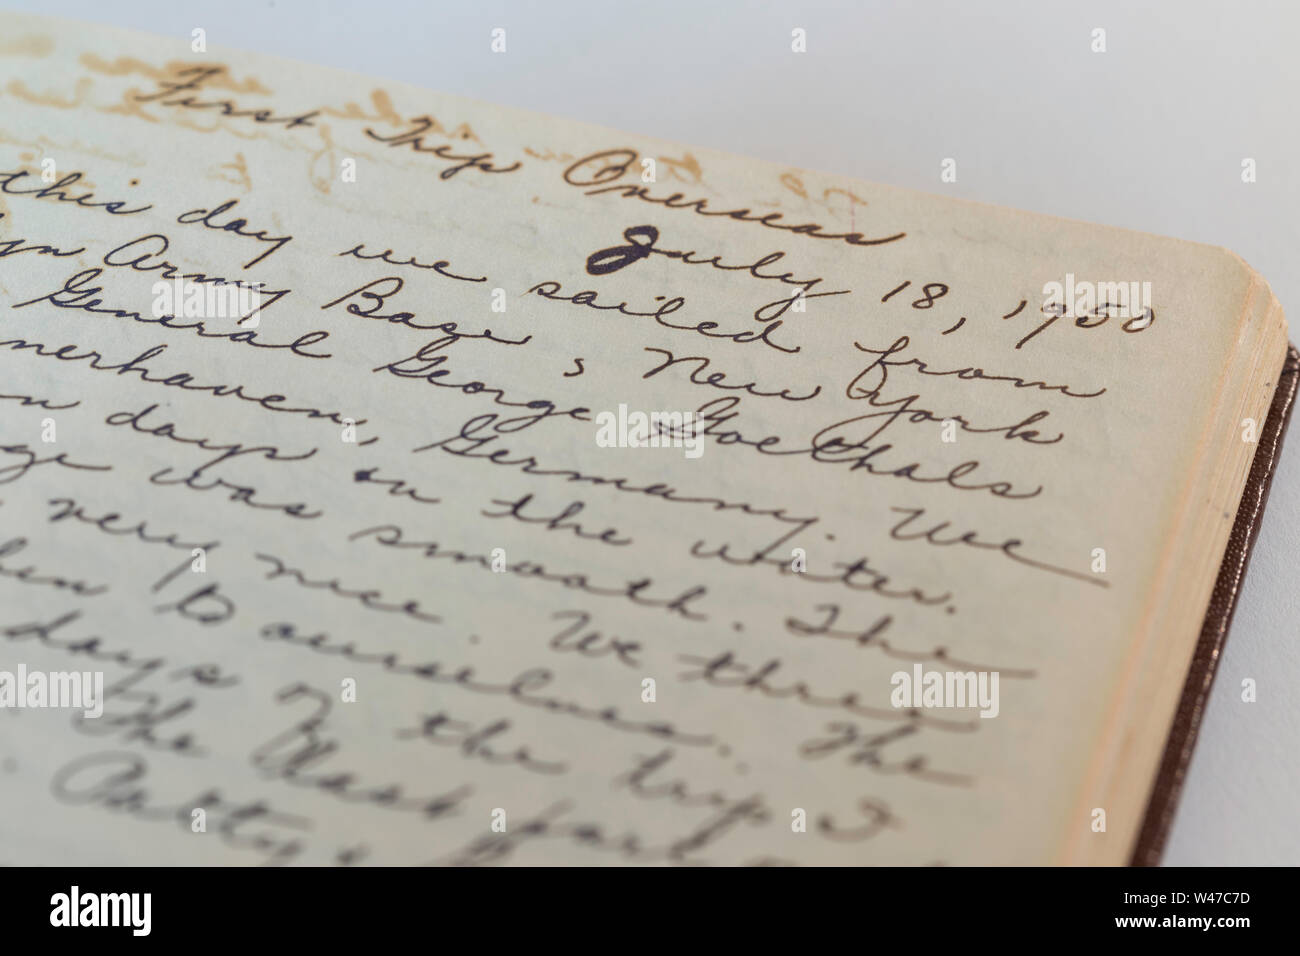 First Trip Overseas
July 18, 1950
this day we sailed from
Army Base, New York
General George Goethals
nerhaven, Germany. We
days on the water.
was smooth. The
very nice. We three
to ourselves. The
days the trip. I
The
Patty
alamy
Image ID: W47C7D
www.alamy.com